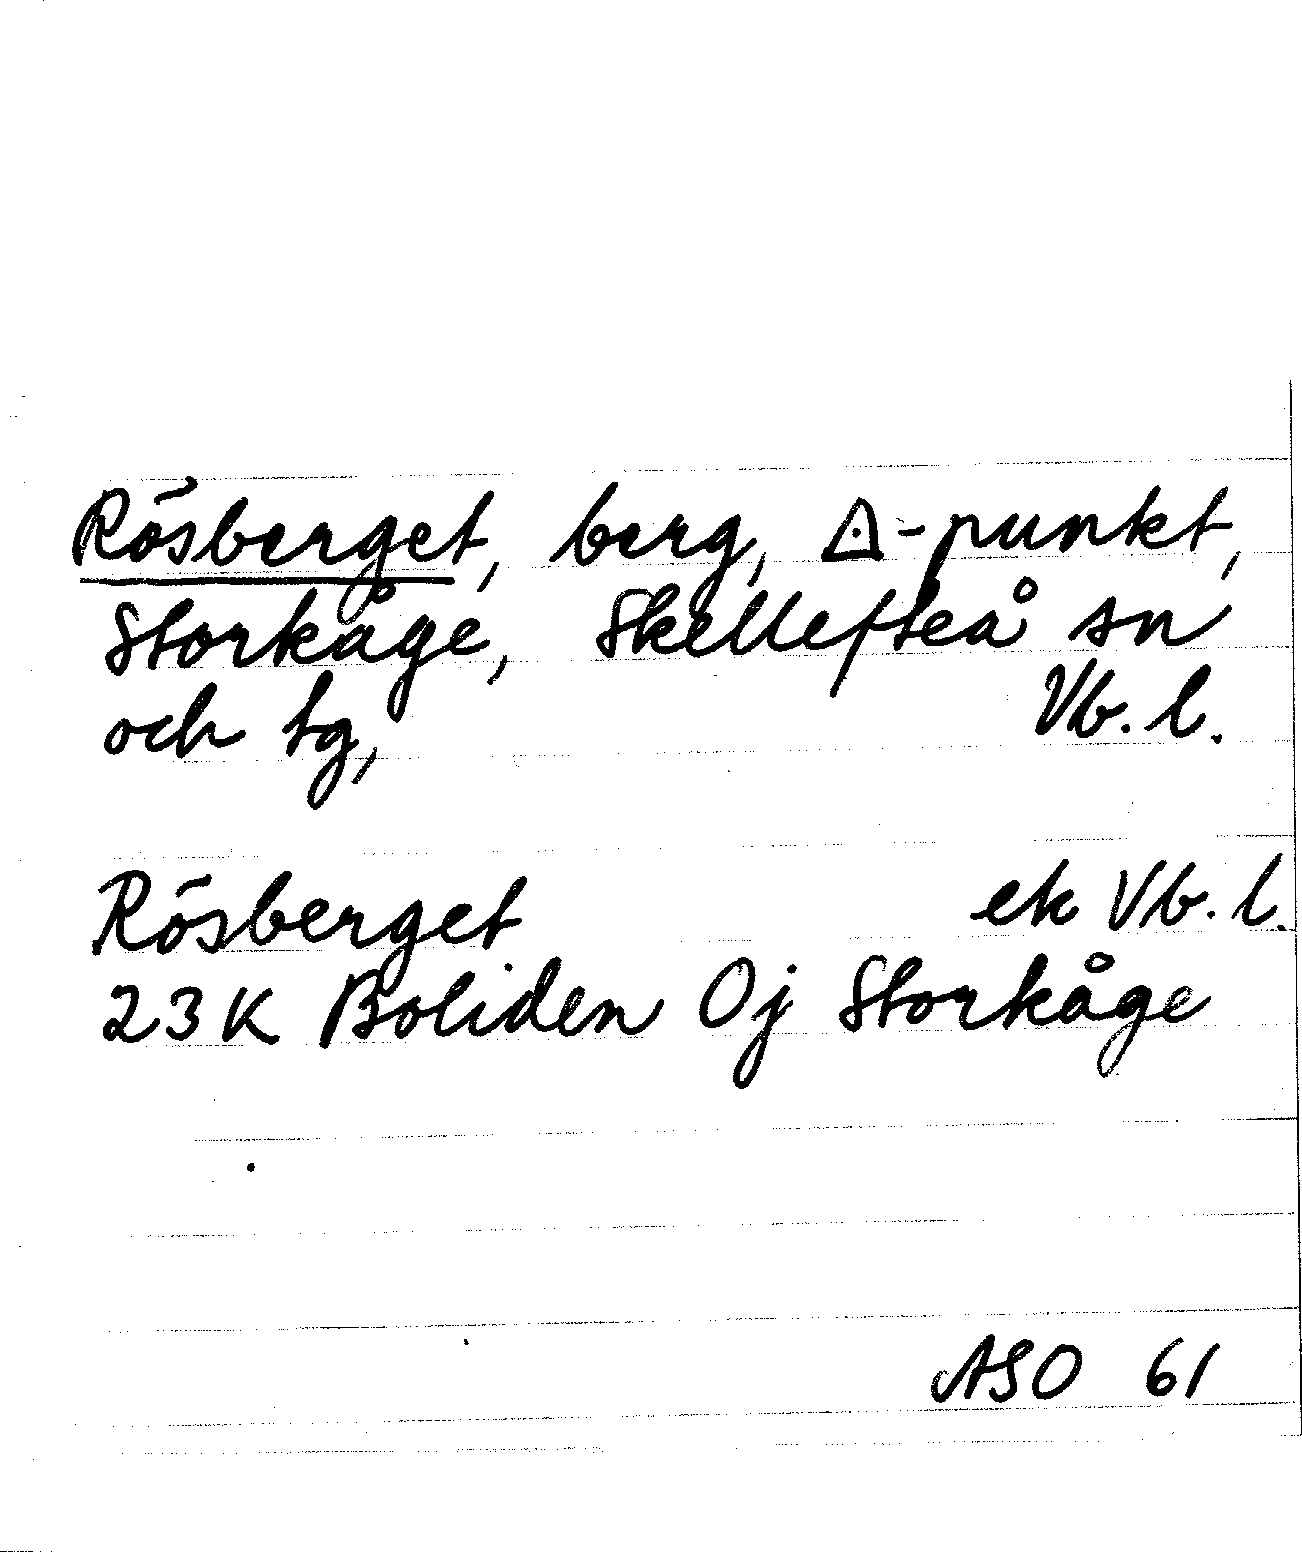 Rösberget, berg, ◬-punkt,
Storkåge, Skellefteå sn
och tg, Vb. l.
Rösberget ek Vb. l.
23K Boliden Oj Storkåge
ASO 61